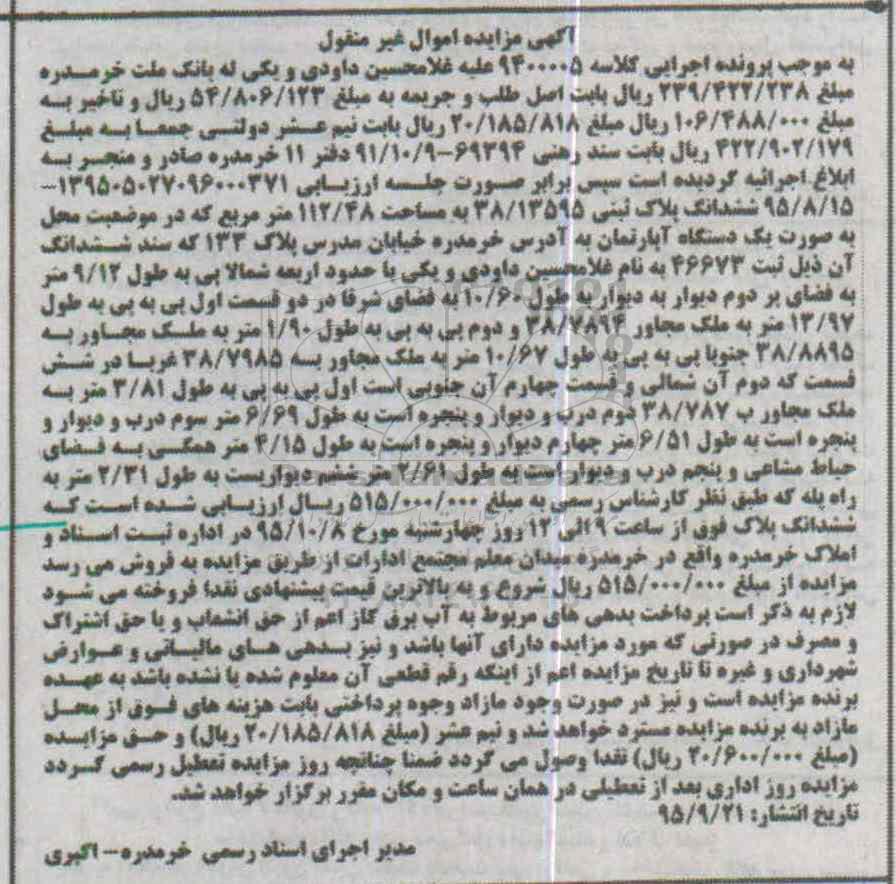 آگهی مزایده اموال غیر منقول
به موجب پرونده اجرایی کلاسه ۹۴۰۰۰۰۵ علیه غلامحسین داودی و یکی له بانک ملت خرمدره
مبلغ ۲۳۹/۴۲۲/۲۳۸ ریال بابت اصل طلب و جریمه به مبلغ ۵۴/۸۰۶/۱۲۳ ریال و تاخیر به
مبلغ ۱۰۶/۴۸۸/۰۰۰ ریال مبلغ ۲۰/۱۸۵/۸۱۸ ریال بابت نیم عشر دولتی جمعا به مبلغ
۴۲۲/۹۰۲/۱۷۹ ریال بابت سند رهنی ۶۹۳۹۴-۹۱/۱۰/۹ دفتر ۱۱ خرمدره صادر و منجر به
ابلاغ اجرائیه گردیده است سپس برابر صورت جلسه ارزیابی ۱۳۹۵۰۵۰۲۷۰۹۶۰۰۰۳۷۱-
۹۵/۸/۱۵ ششدانگ پلاک ثبتی ۳۸/۱۳۵۹۵ به مساحت ۱۱۲/۴۸ متر مربع که در موضعیت محل
به صورت یک دستگاه آپارتمان به آدرس خرمدره خیابان مدرس پلاک ۱۳۳ که سند ششدانگ
آن ذیل ثبت ۴۶۶۷۳ به نام غلامحسین داودی و یکی با حدود اربعه شمالا پی به طول ۹/۱۲ متر
به فضای بر دوم دیوار به دیوار به طول ۱۰/۶۰ به فضای شرقا در دو قسمت اول پی به پی به طول
۱۳/۹۷ متر به ملک مجاور ۳۸/۷۸۹۴ و دوم پی به پی به طول ۱/۹۰ متر به ملک مجاور به
۳۸/۸۸۹۵ جنوبا پی به پی به طول ۱۰/۶۷ متر به ملک مجاور به ۳۸/۷۹۸۵ غربا در شش
قسمت که دوم آن شمالی و قسمت چهارم آن جنوبی است اول پی به پی به طول ۳/۸۱ متر به
ملک مجاور ب ۳۸/۷۸۷ دوم درب و دیوار و پنجره است به طول ۶/۶۹ متر سوم درب و دیوار و
پنجره است به طول ۶/۵۱ متر چهارم دیوار و پنجره است به طول ۴/۱۵ متر همگی به فضای
حیاط مشاعی و پنجم درب و دیوار است به طول ۲/۶۱ متر ششم دیواریست به طول ۲/۳۱ متر به
راه پله که طبق نظر کارشناس رسمی به مبلغ ۵۱۵/۰۰۰/۰۰۰ ریال ارزیابی شده است که
ششدانگ پلاک فوق از ساعت ۹ الی ۱۲ روز چهارشنبه مورخ ۹۵/۱۰/۸ در اداره ثبت اسناد و
املاک خرمدره واقع در خرمدره میدان معلم مجتمع ادارات از طریق مزایده به فروش می رسد
مزایده از مبلغ ۵۱۵/۰۰۰/۰۰۰ ریال شروع و به بالاترین قیمت پیشنهادی نقدا فروخته می شود
لازم به ذکر است پرداخت بدهی های مربوط به آب برق گاز اعم از حق انشعاب و یا حق اشتراک
و مصرف در صورتی که مورد مزایده دارای آنها باشد و نیز بدهی های مالیاتی و عوارض
شهرداری و غیره تا تاریخ مزایده اعم از اینکه رقم قطعی آن معلوم شده یا نشده باشد به عهده
برنده مزایده است و نیز در صورت وجود مازاد وجوه پرداختی بابت هزینه های فوق از محل
مازاد به برنده مزایده مسترد خواهد شد و نیم عشر (مبلغ ۲۰/۱۸۵/۸۱۸ ریال) و حق مزایده
(مبلغ ۲۰/۶۰۰/۰۰۰ ریال) نقدا وصول می گردد ضمنا چنانچه روز مزایده تعطیل رسمی گردد
مزایده روز اداری بعد از تعطیلی در همان ساعت و مکان مقرر برگزار خواهد شد.
تاریخ انتشار: ۹۵/۹/۲۱
مدیر اجرای اسناد رسمی خرمدره - اکبری